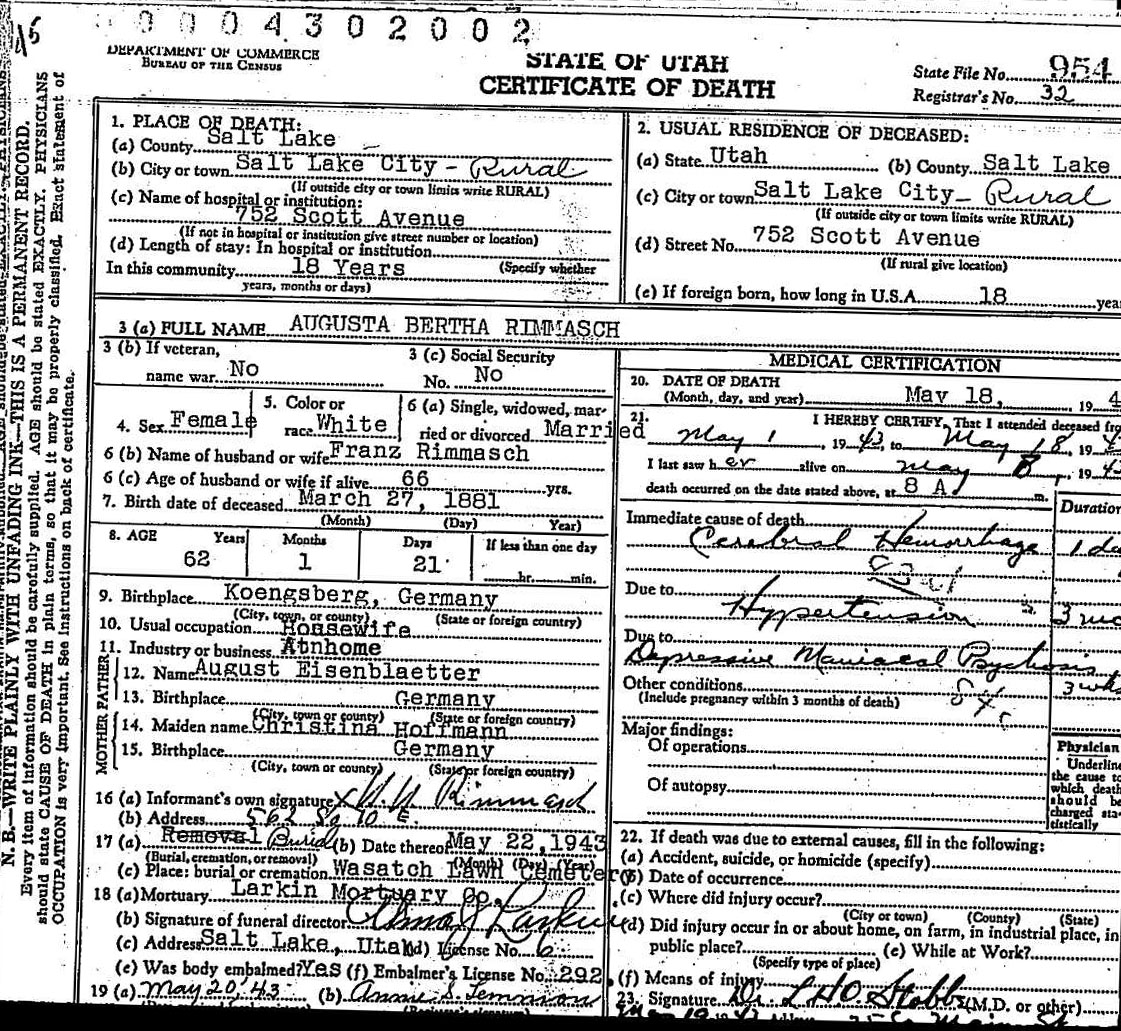 0004302002
DEPARTMENT OF COMMERCE
BUREAU OF THE CENSUS
STATE OF UTAH
CERTIFICATE OF DEATH
State File No. 954
Registrar's No. 32
N. B.—WRITE PLAINLY WITH UNFADING INK—THIS IS A PERMANENT RECORD.
Every item of information should be carefully supplied. AGE should be stated EXACTLY. PHYSICIANS
should state CAUSE OF DEATH in plain terms, so that it may be properly classified. Exact statement of
OCCUPATION is very important. See instructions on back of certificate.
1. PLACE OF DEATH:
(a) County Salt Lake
(b) City or town Salt Lake City - Rural
(If outside city or town limits write RURAL)
(c) Name of hospital or institution:
752 Scott Avenue
(If not in hospital or institution give street number or location)
(d) Length of stay: In hospital or institution
In this community 18 Years (Specify whether
years, months or days)
2. USUAL RESIDENCE OF DECEASED:
(a) State Utah (b) County Salt Lake
(c) City or town Salt Lake City - Rural
(If outside city or town limits write RURAL)
(d) Street No. 752 Scott Avenue
(If rural give location)
(e) If foreign born, how long in U.S.A. 18 yea
3 (a) FULL NAME AUGUSTA BERTHA RIMMASCH
3 (b) If veteran,
name war No
3 (c) Social Security
No. No
4. Sex Female
5. Color or
race White
6 (a) Single, widowed, mar-
ried or divorced Married
6 (b) Name of husband or wife Franz Rimmasch
6 (c) Age of husband or wife if alive 66 yrs.
7. Birth date of deceased March 27, 1881
(Month) (Day) Year)
8. AGE Years Months Days If less than one day
62 1 21 hr. min.
9. Birthplace Koengsberg, Germany
(City, town, or county) (State or foreign country)
10. Usual occupation Housewife
11. Industry or business Atnhome
FATHER
12. Name August Eisenblaetter
13. Birthplace Germany
(City, town or county) (State or foreign country)
MOTHER
14. Maiden name Christina Hoffmann
15. Birthplace Germany
(City, town or county) (State or foreign country)
16 (a) Informant's own signature x Rimmasch
(b) Address 562 So 10 E.
17 (a) Removal Burial (b) Date thereof May 22, 1943
(Burial, cremation, or removal) (Month) (Day) (Year)
(c) Place: burial or cremation Wasatch Lawn Cemetery
18 (a) Mortuary Larkin Mortuary Co.
(b) Signature of funeral director Alma J Larkin
(c) Address Salt Lake, Utah (d) License No. 6
(e) Was body embalmed? Yes (f) Embalmer's License No. 292
19 (a) May 20 '43 (b) Annie S.
MEDICAL CERTIFICATION
20. DATE OF DEATH
(Month, day, and year) May 18, 19 4
21. I HEREBY CERTIFY, That I attended deceased fro
May 1, 19 43 to May 18, 19 4
I last saw h er alive on May 8, 19 4
death occurred on the date stated above, at 8 A m.
Duration
Immediate cause of death
Cerebral Hemorrhage 1 da
Due to
Hypertension 3 mo
Due to
Depressive Maniacal Psychosis
Other conditions 3 wks
(Include pregnancy within 3 months of death) 84c
Major findings:
Of operations
Of autopsy
Physician
Underline
the cause to
which death
should be
charged sta-
tistically
22. If death was due to external causes, fill in the following:
(a) Accident, suicide, or homicide (specify)
(b) Date of occurrence
(c) Where did injury occur?
(City or town) (County) (State)
(d) Did injury occur in or about home, on farm, in industrial place, in
public place? (e) While at Work?
(Specify type of place)
(f) Means of injury
23. Signature Dr. L H O Stobbe (M.D. or other)